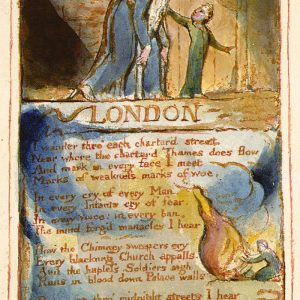 LONDON
I wander thro each charter'd street,
Near where the charter'd Thames does flow
And mark in every face I meet
Marks of weakness, marks of woe.
In every cry of every Man
In every Infants cry of fear
In every voice: in every ban
The mind-forg'd manacles I hear
How the Chimney-sweepers cry
Every blackning Church appalls,
And the hapless Soldiers sigh
Runs in blood down Palace walls
thro midnight streets I hear